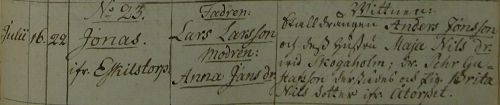 No 23.
Julii 16. 22
Jonas.
ifr. Eskilstorp.
Fadren:
Lars Larsson
Modren:
Anna Jans dr.
Wittnen:
Stalldrängen Anders Jönsson
och dess Hustru Maja Nils dr.
wid Skogaholm; Dr. Pehr Gu-
stafsson och Pig. Brita
Nils dotter ifr. Åtorpet.